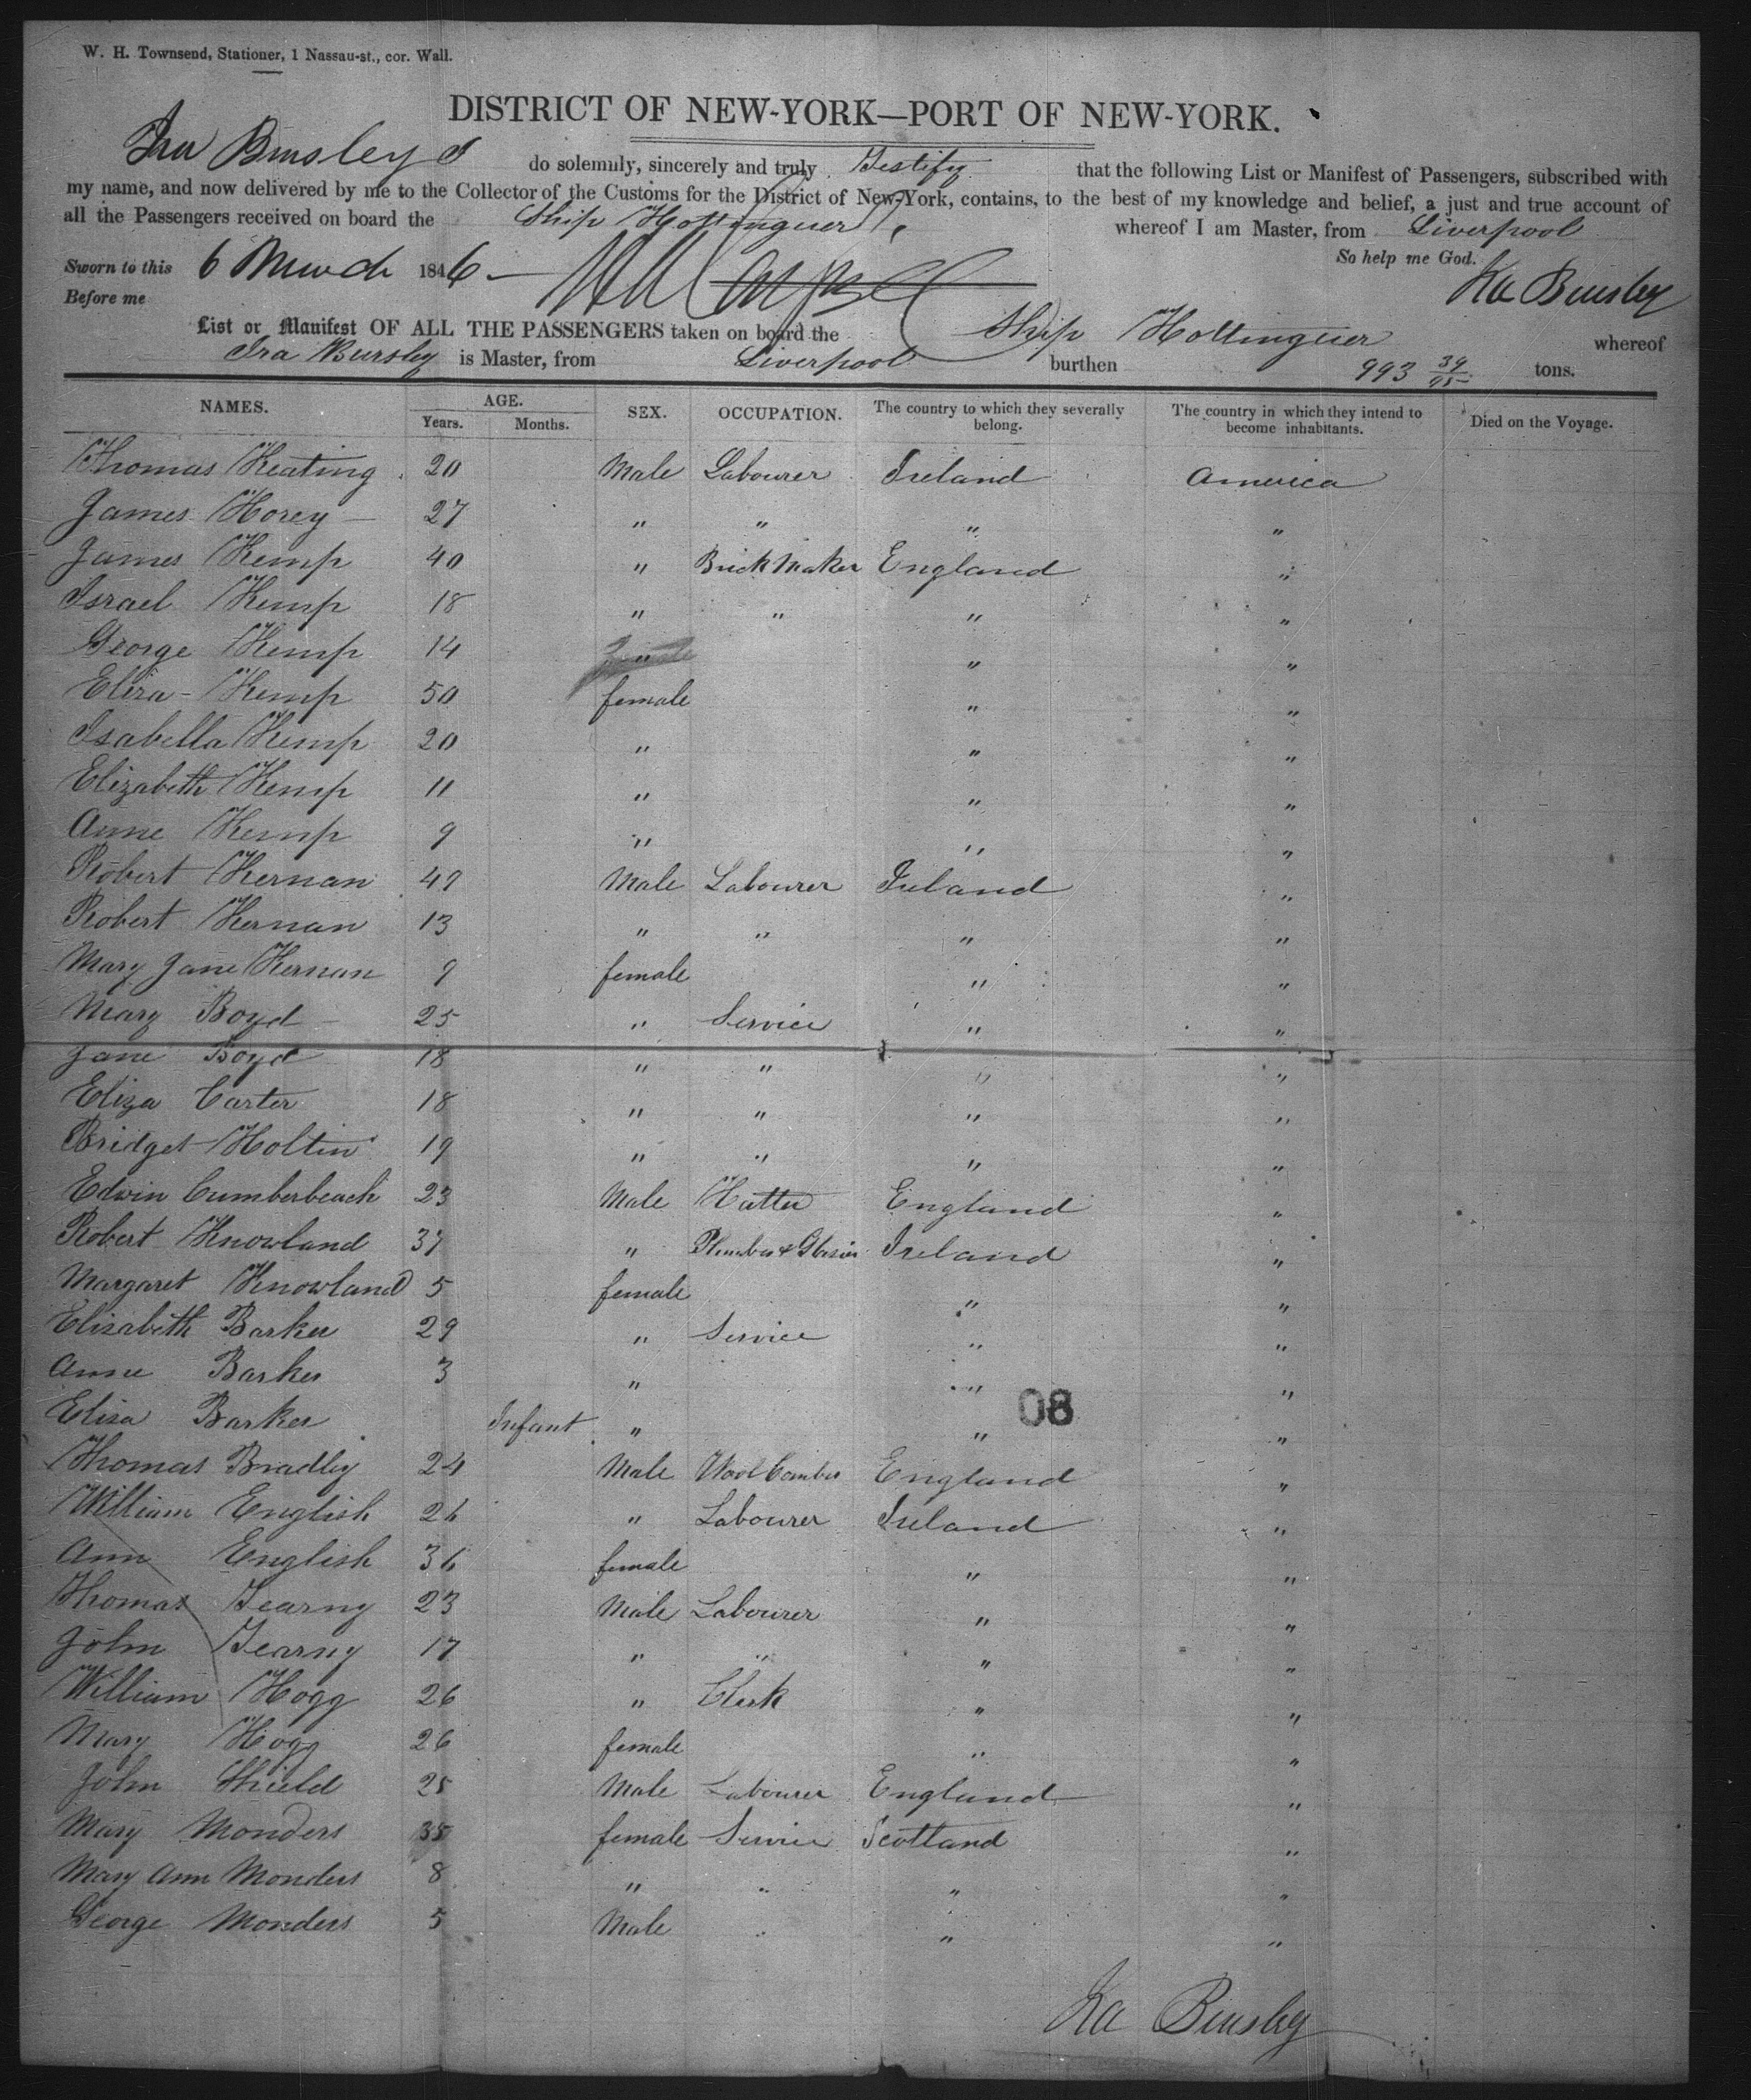 W. H. Townsend, Stationer, 1 Nassau-st., cor. Wall.
DISTRICT OF NEW-YORK—PORT OF NEW-YORK.
Ira Bursley I do solemnly, sincerely and truly Testify that the following List or Manifest of Passengers, subscribed with
my name, and now delivered by me to the Collector of the Customs for the District of New-York, contains, to the best of my knowledge and belief, a just and true account of
all the Passengers received on board the Ship Hottinguer whereof I am Master, from Liverpool
So help me God.
Sworn to this 6 March 1846 Ira Bursley
Before me
List or Manifest OF ALL THE PASSENGERS taken on board the Ship Hottinguer whereof
Ira Bursley is Master, from Liverpool burthen 993 39/95 tons.
NAMES. AGE. Years. Months. SEX. OCCUPATION. The country to which they severally belong. The country in which they intend to become inhabitants. Died on the Voyage.
Thomas Keating 20 Male Labourer Ireland America
James Horey 27 " " " "
James Kemp 40 " Brick Maker England "
Israel Kemp 18 " " " "
George Kemp 14 " " "
Eliza Kemp 50 female " "
Isabella Kemp 20 " " "
Elizabeth Kemp 11 " " "
Anne Kemp 9 " " "
Robert Kernan 49 Male Labourer Ireland "
Robert Kernan 13 " " " "
Mary Jane Kernan 9 female " "
Mary Boyd 25 " Service " "
Jane Boyd 18 " " " "
Eliza Carter 18 " " " "
Bridget Holtin 19 " " " "
Edwin Cumberbeach 23 Male Hatter England "
Robert Knowland 37 " Plumber & Glasier Ireland "
Margaret Knowland 5 female " "
Elizabeth Barker 29 " Service " "
Anne Barker 3 " " "
08
Eliza Barker Infant " " "
Thomas Bradley 24 Male Wool Comber England "
William English 26 " Labourer Ireland "
Ann English 36 female " "
Thomas Fearny 23 Male Labourer " "
John Fearny 17 " " " "
William Hogg 26 " Clerk " "
Mary Hogg 26 female " "
John Shield 25 Male Labourer England "
Mary Monders 35 female Service Scotland "
Mary Ann Monders 8 " " " "
George Monders 5 Male " "
Ira Bursley